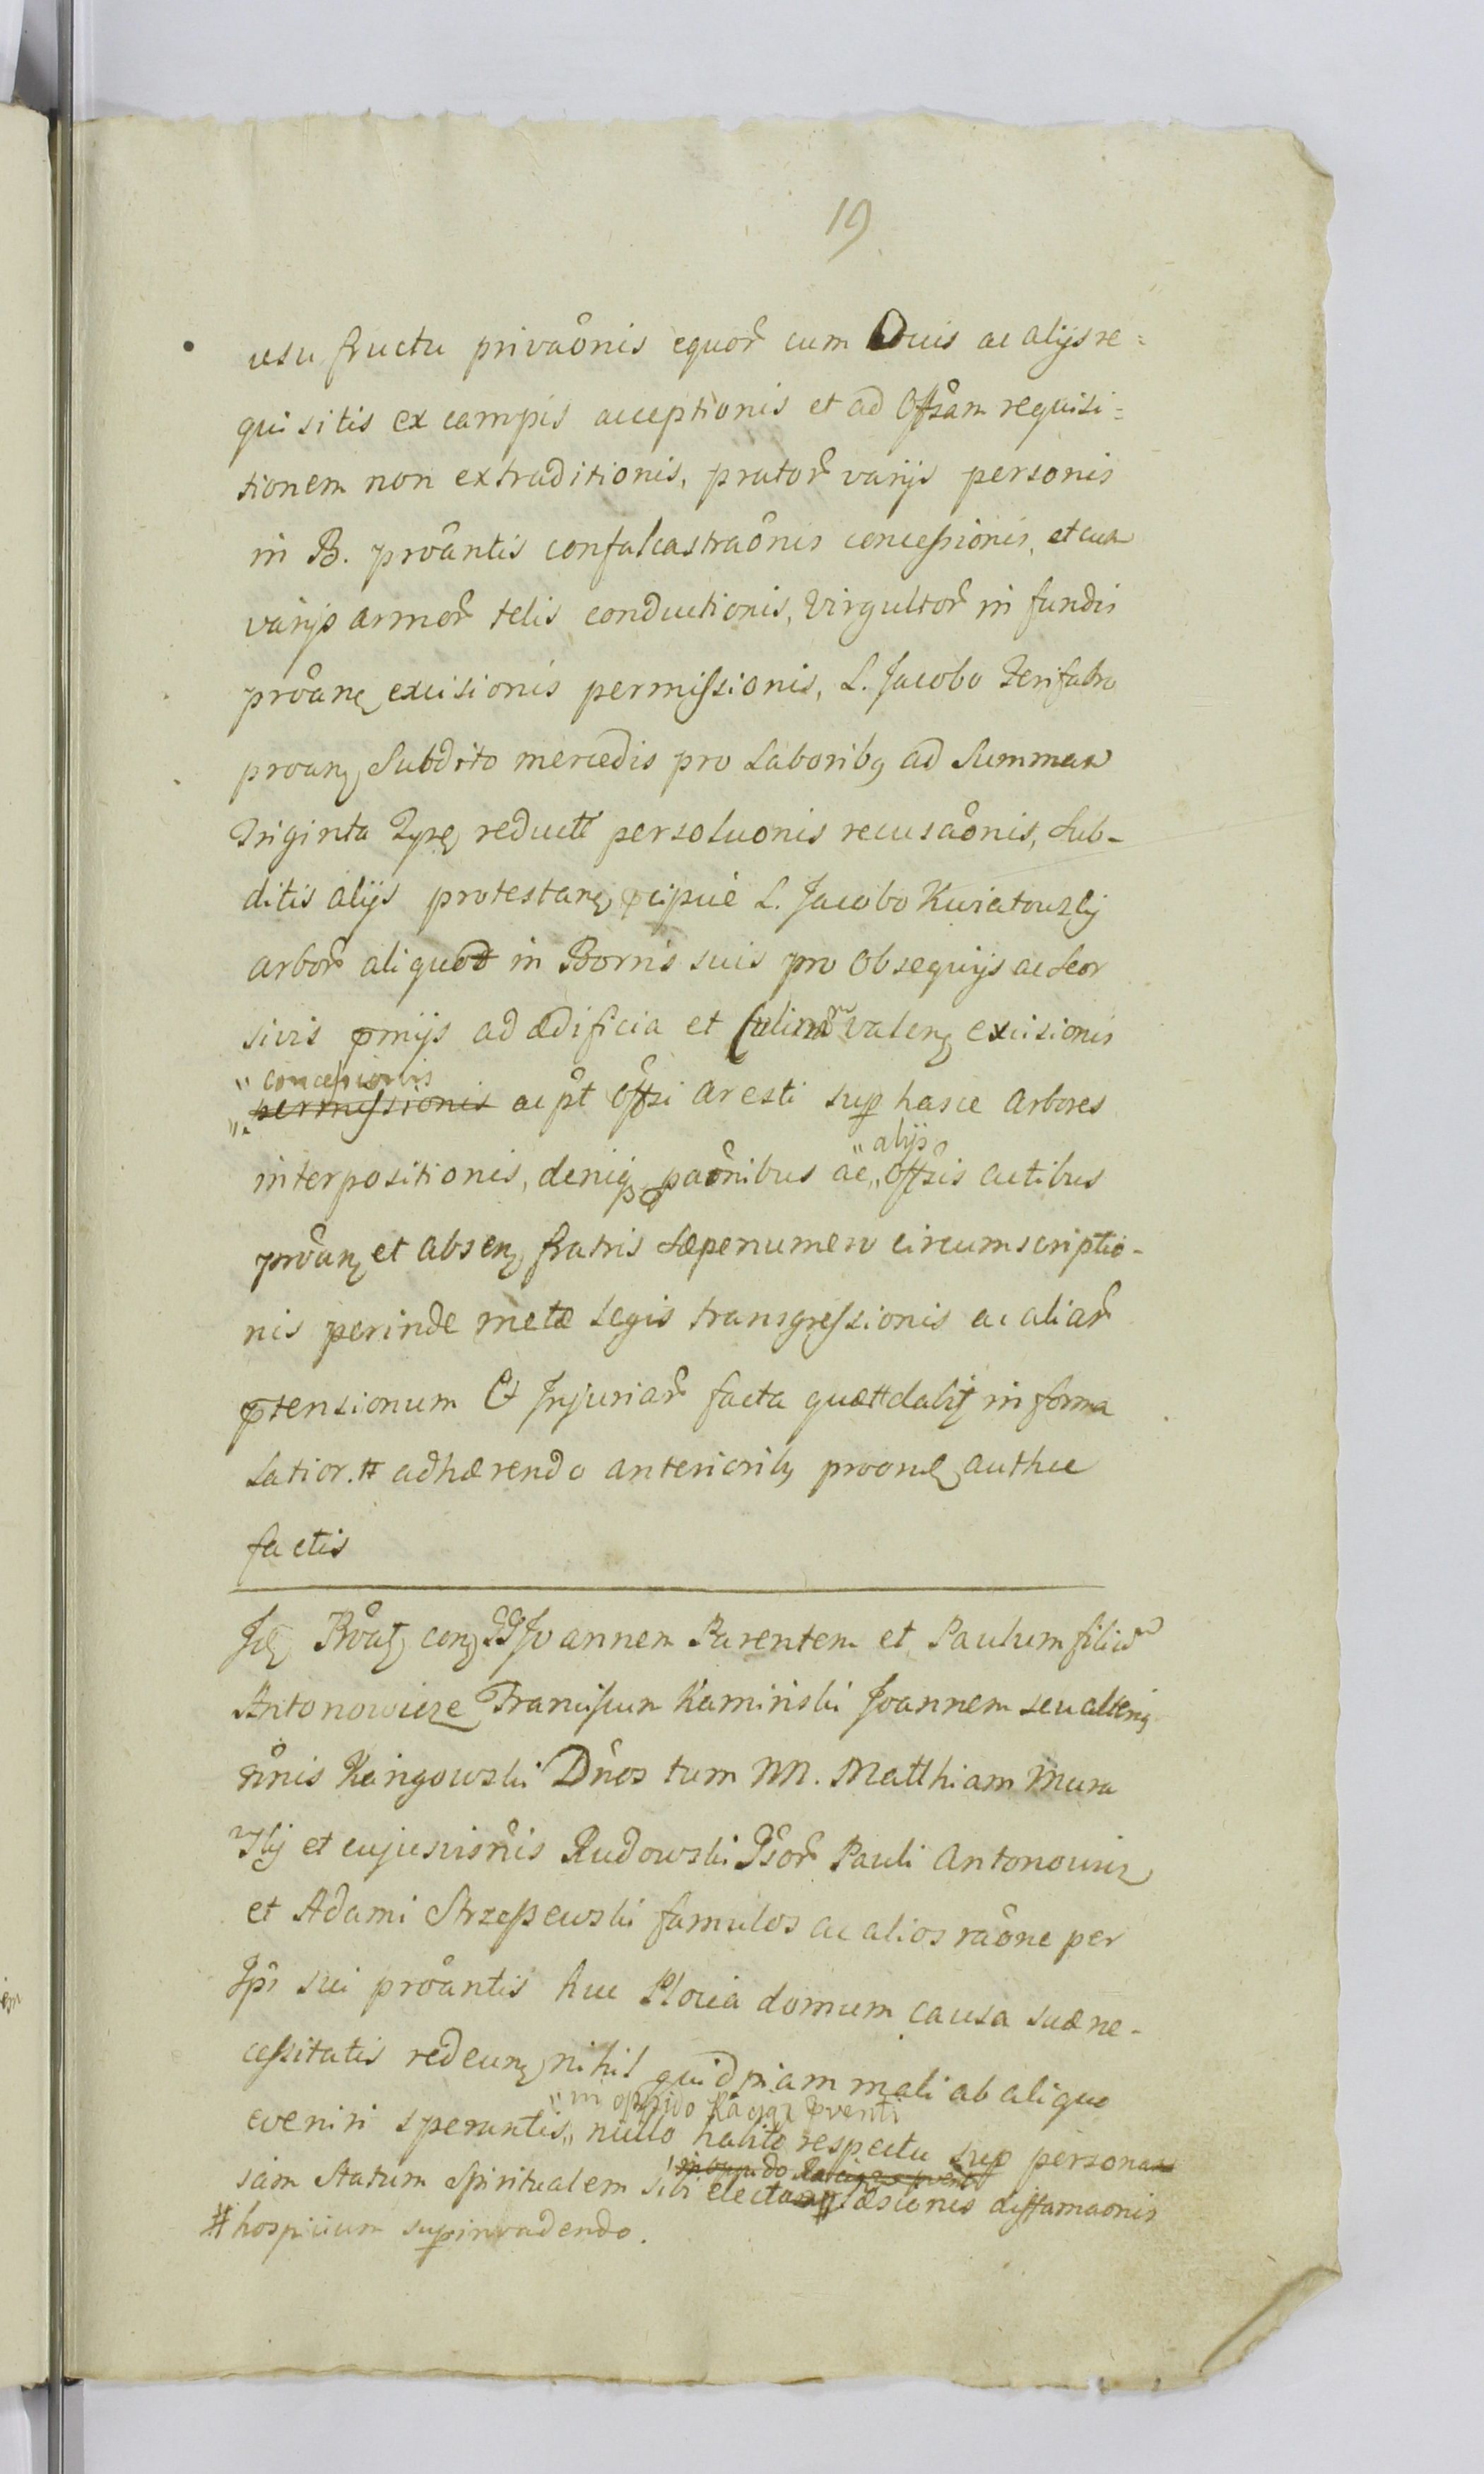 19
usu fructu privãonis equor̃ cum Ovis ac alijs re=
quisitis ex campis acceptionis et ad Offsam requisi=
tionem non extraditionis, prator̃ varijs personis
in B. prõantis confalcastrãonis concessionis, et cum
varijs armor̃ telis conductionis, Virgultor̃ in fundis
prõanẽ excisionis permissionis, L. Jacobo Ferifabro
proanẽ Subdito mercedis pro Laboribq ad Summam
Triginta Tynf reducti persoluonis recusãonis, Sub-
ditis alijs protestanẽ pcipuè L. Jacobo Kwiatowski
arbor̃ aliquod in Borris suis pro Obsequijs ac Seor
sivis pmijs ad ædificia et valenẽ excisionis
" concessionis
permissionis ac pt Offsi aresti sup hasce arbores
" alijs
interpositionis, deniq pãonibus ac " Offsis actibus
prõanẽ et absenẽ fratris Sæpenumero circumscriptio-
nis perinde metæ Legis transgressionis ac aliar̃
ptensionum & Injuriar̃ facta quætt dabit in forma
Latior. tt adhærendo anteriorib9 proonẽ authce
factis
Idẽ Prõatẽ conẽ GG Joannem Parentem et Paulum filiũ
Antonowicze Franciscum Kaminski Joannem seu alterig
nõnis Kengowski Dnos tum NN. Matthiam Mura
wski et cujusvis nõis Rudowski Gsor̃ Pauli Antonowicz
et Adami Strzeszewski famulos ac alios rãone per
Ipsi sui prõantis huc Plocia domum causa suæ ne-
cessitatis redeunẽ nihil quidpiam mali ab aliquo
" in oppido Raciąż pventi
eveniri sperantis " nullo habito respectu sup personam
in oppido Raciąż pventi
sam Statum Spiritualem sibi electam # læsionis diffamaonis
# hospicium supinvadendo.